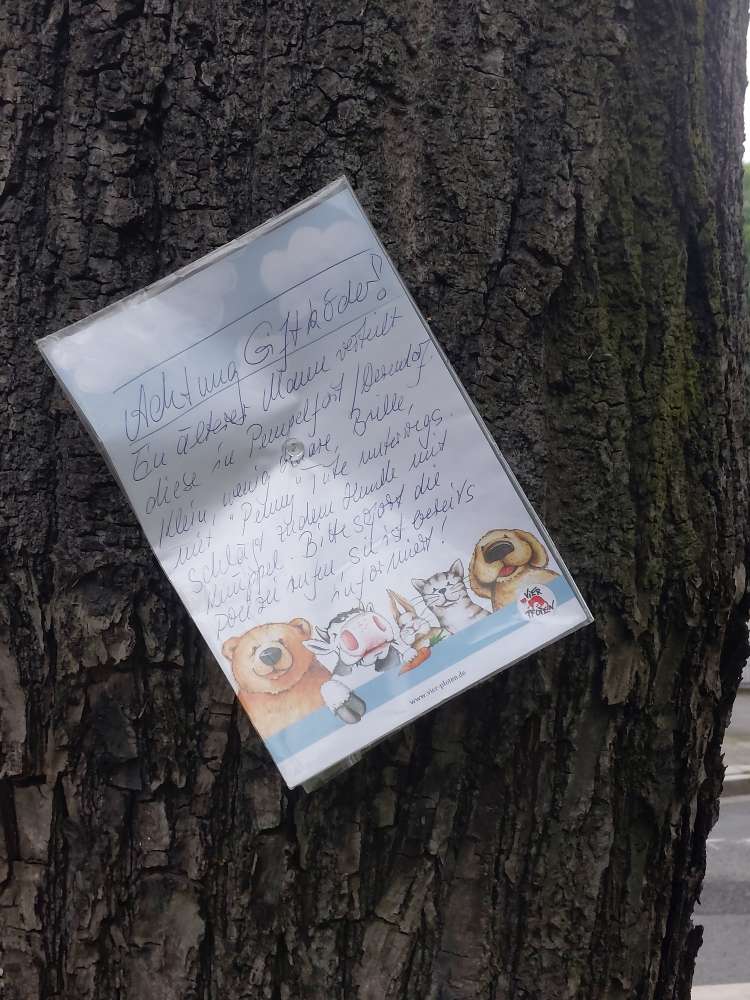 Achtung Giftköder!
Ein älterer Mann verteilt
diese in Pempelfort/Derendorf.
Klein, wenig Haare, Brille,
mit "Penny" Tüte unterwegs.
Schlägt zudem Hunde mit
Knüppel. Bitte sofort die
Polizei rufen sie ist bereits
informiert!
VIER
PFOTEN
www.vier-pfoten.de